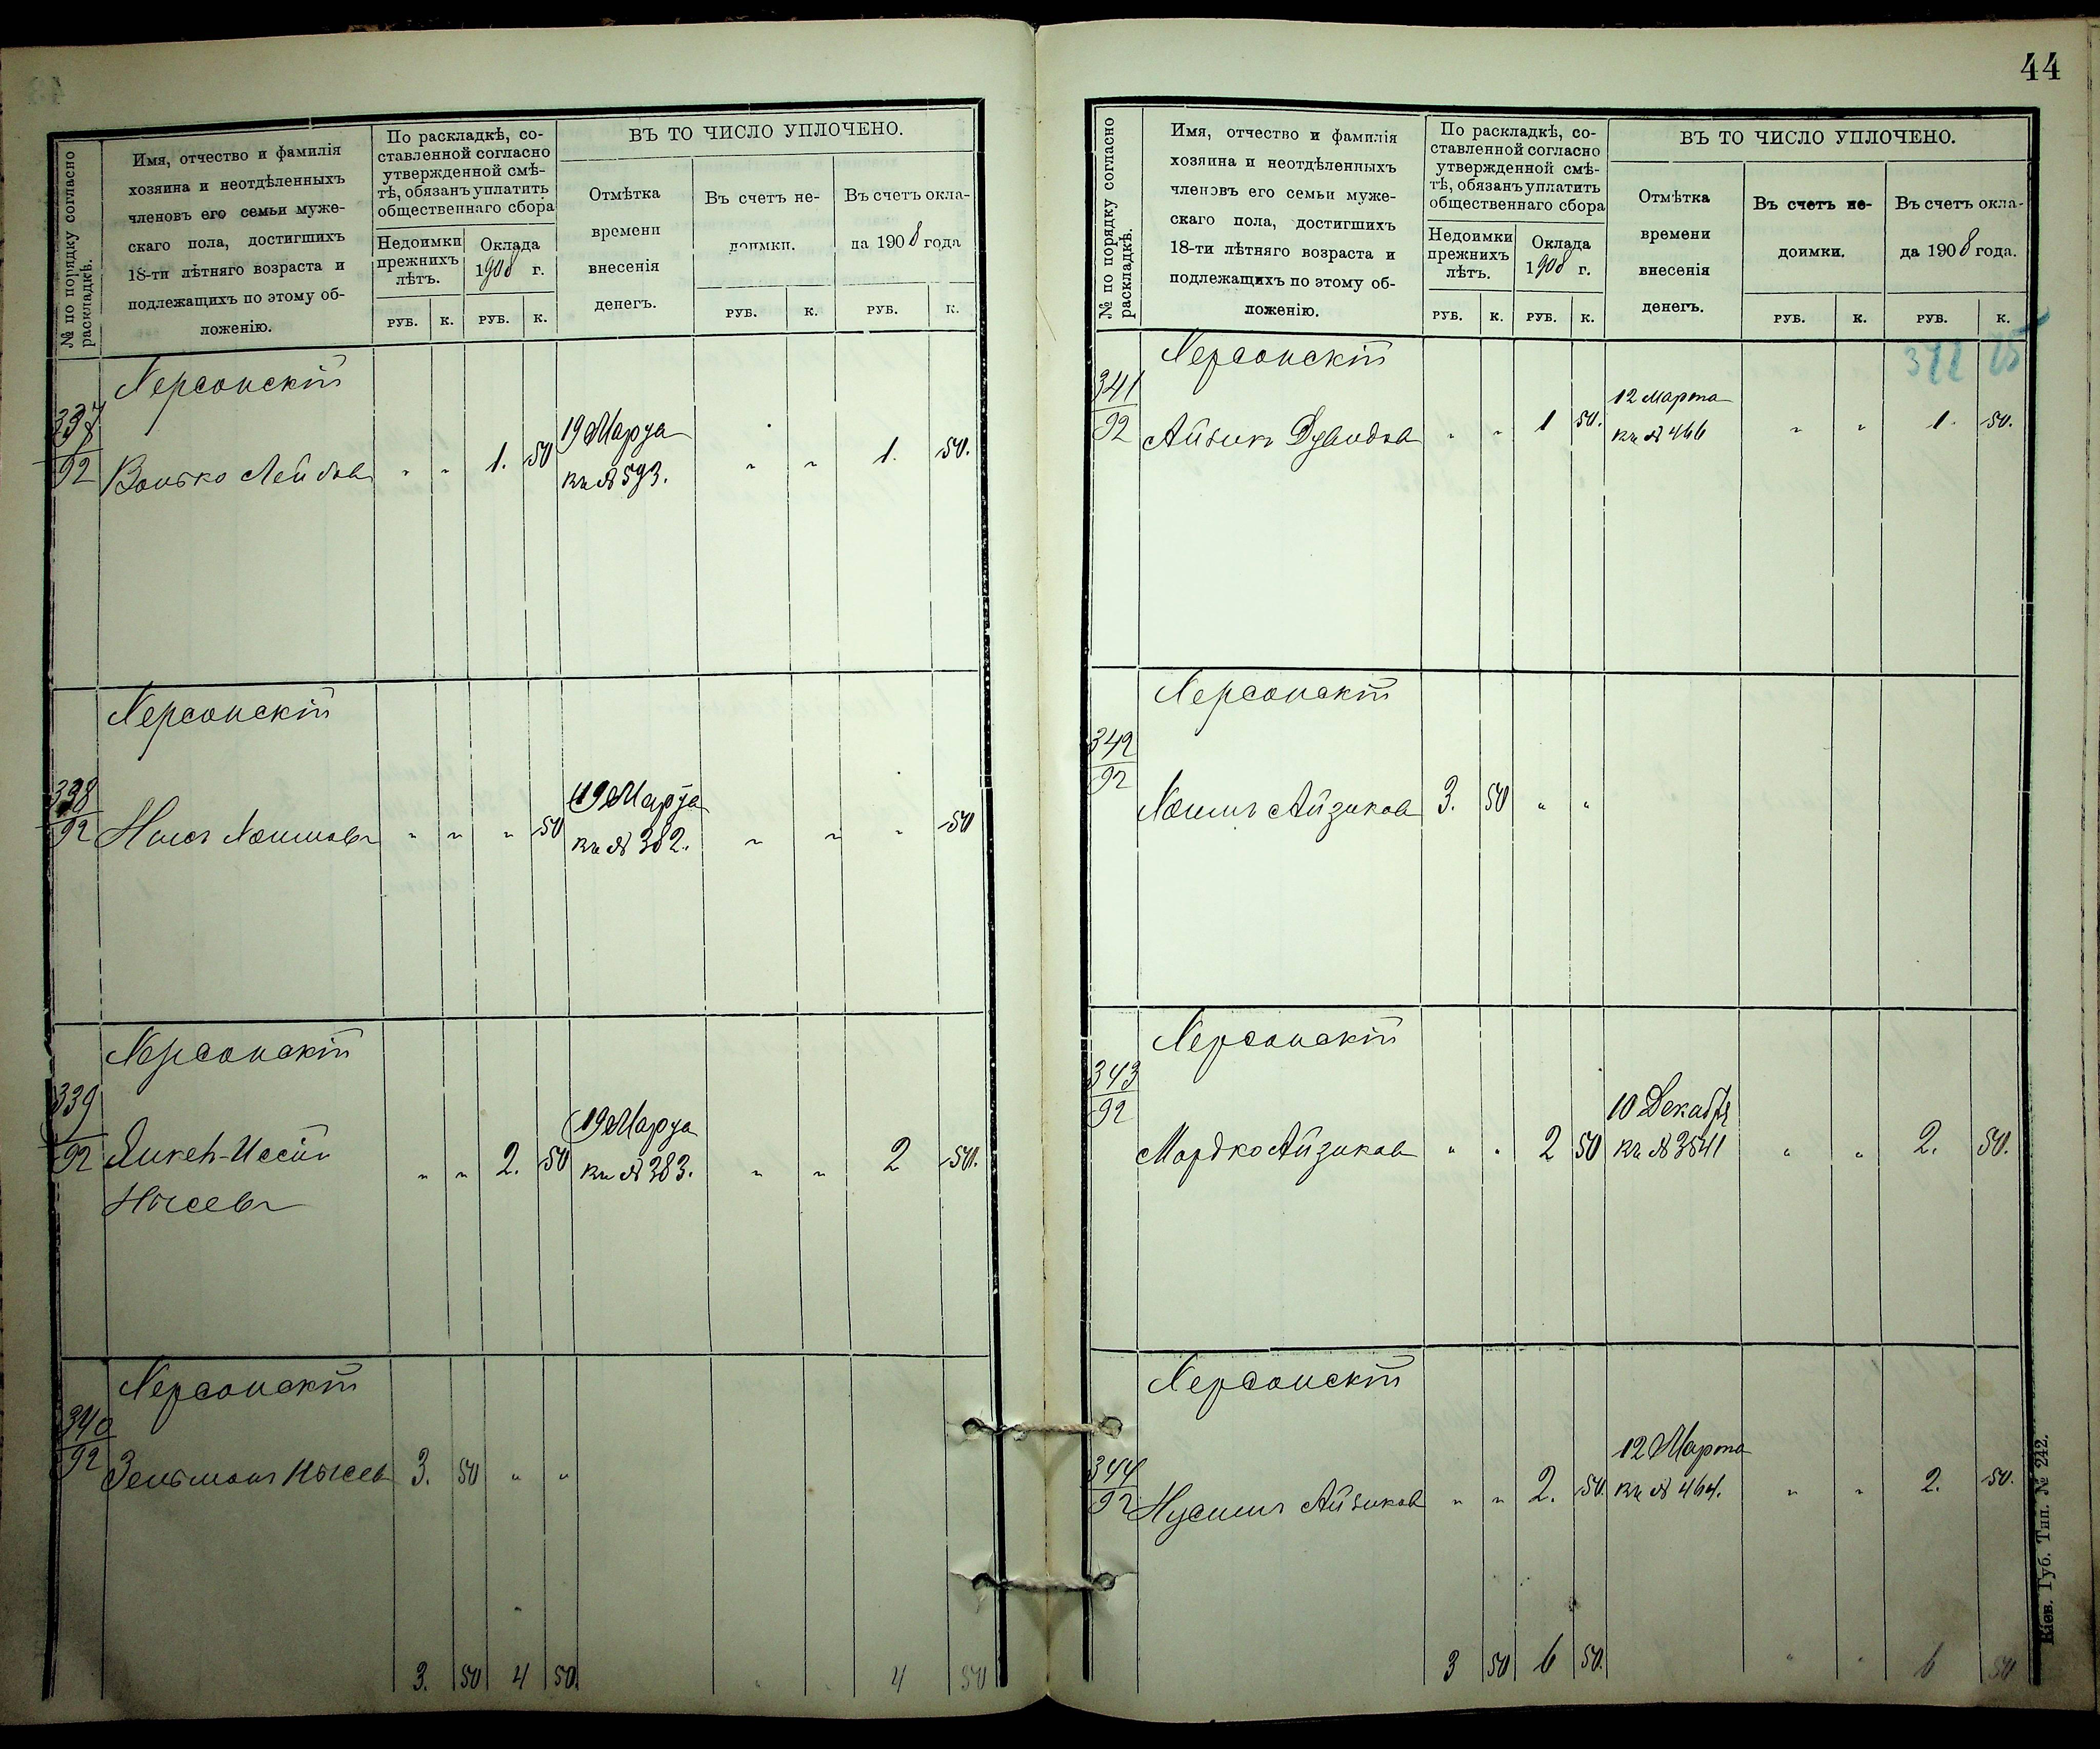 № по порядку согласно раскладкѣ.
Имя, отчество и фамилія
хозяина и неотдѣленныхъ
членовъ его семьи муже-
скаго пола, достигшихъ
18-ти лѣтняго возраста и
подлежащихъ по этому об-
ложенію.
По раскладкѣ, со-
ставленной согласно
утвержденной смѣ-
тѣ, обязанъ уплатить
общественнаго сбора
Недоимки прежнихъ лѣтъ.
Оклада 1908 г.
РУБ. К. РУБ. К.
ВЪ ТО ЧИСЛО УПЛОЧЕНО.
Отмѣтка
времени
внесенія
денегъ.
Въ счетъ не-
доимки.
РУБ. К.
Въ счетъ окла-
да 1908 года
РУБ. К.
Херсонскій
337/92 Волько Лейбовъ " " 1. 50 19 Марта " " 1. 50.
кв № 593.
Херсонскій
338/92 Нысъ Хаимовъ " " " 50 19 Марта " " " 50
кв № 382.
Херсонскій
339/92 Янкель-Іосій " " 2. 50 19 Марта " " 2 50.
Нысевъ кв № 383.
Херсонскій
340/92 Зельманъ Нысев 3. 50 " "
3. 50 4 50. " " 4 50
44
№ по порядку согласно раскладкѣ.
Имя, отчество и фамилія
хозяина и неотдѣленныхъ
членовъ его семьи муже-
скаго пола, достигшихъ
18-ти лѣтняго возраста и
подлежащихъ по этому об-
ложенію.
По раскладкѣ, со-
ставленной согласно
утвержденной смѣ-
тѣ, обязанъ уплатить
общественнаго сбора
Недоимки прежнихъ лѣтъ.
Оклада 1908 г.
РУБ. К. РУБ. К.
ВЪ ТО ЧИСЛО УПЛОЧЕНО.
Отмѣтка
времени
внесенія
денегъ.
Въ счетъ не-
доимки.
РУБ. К.
Въ счетъ окла-
да 1908 года.
РУБ. К.
Херсонскій
341/92 Айзикъ Дувидов " " 1 50. 12 Марта " " 1. 50.
кв № 466
Херсонскій
342/92 Хаимъ Айзиков 3. 50 " "
Херсонскій
343/92 10 Декабря
Мордко Айзиков " " 2 50 кв № 3541 " " 2. 50.
Херсонскій
344/92 12 Марта
Нусимъ Айзиков " " 2. 50. кв № 464. " " 2. 50.
3 50 6 50. " " 6 50
Кіев. Губ. Тип. № 242.